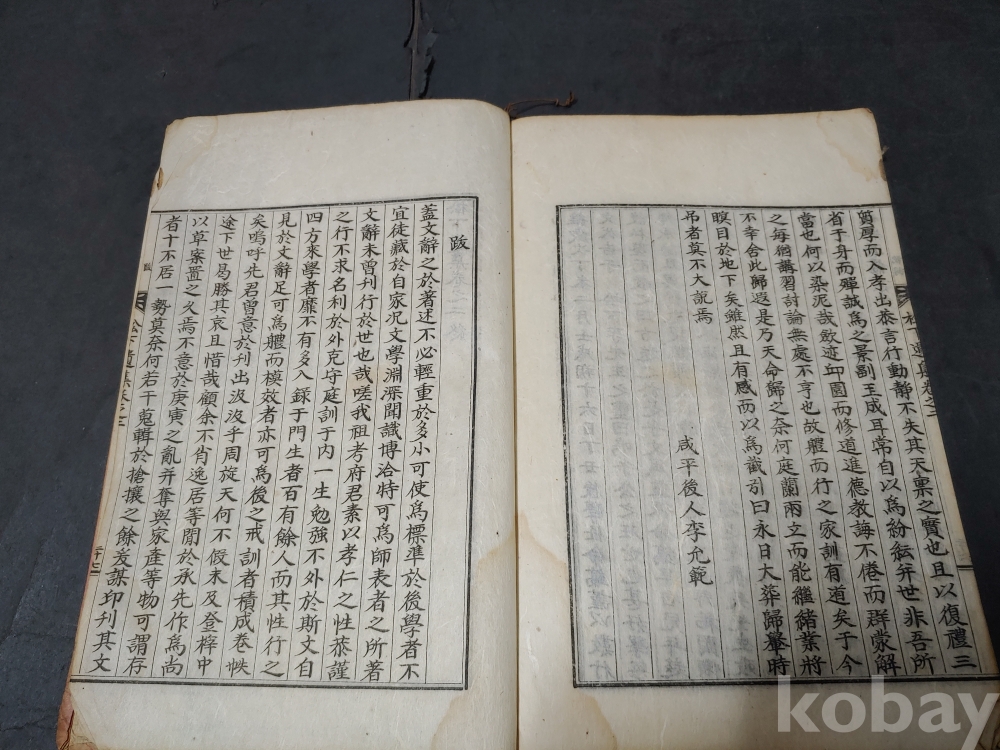 質厚而入孝出恭言行動靜不失其天稟之實也且以復禮三
省于身而暉誠爲之景劉王成耳常自以爲紛紜弁世非吾所
當也何以染泥哉斂迹邱園而修道進德教誨不倦而群蒙解
之每猶講習討論無處不亨也故軆而行之家訓有道矣于今
不幸舍此歸遐是乃天命歸之奈何庭蘭雨立而能繼緖業將
瞑目於地下矣雖然且有感而以爲截引曰永日大葬歸轝時
吊者莫不大說焉
咸平後人李允範
跋
蓋文辭之於著述不必輕重於多小可使爲標準於後學者不
宜徒藏於自家沉文學淵深聞識博洽特可爲師表者之所著
文辭未曾刊行於世也哉嗟我祖考府君素以孝仁之性恭謹
之行不求名利於外克守庭訓于內一生勉強不外於斯文自
四方來學者靡不有多入錄于門生者百有餘人而其性行之
見於文辭足可爲軆而模效者亦可爲後之戒訓者積成卷帙
矣嗚呼先君曾意於刊出汲汲乎周旋天何不假未及登梓中
途下世曷勝其哀且惜哉顧余不肖逸居等閒於承先作爲尚
以草案置之久焉不意於庚寅之亂幷奪與家産等物可謂存
者十不居一勢莫奈何若干蒐輯於搶攘之餘爰謀印刊其文
跋
遺集卷之二
kobay